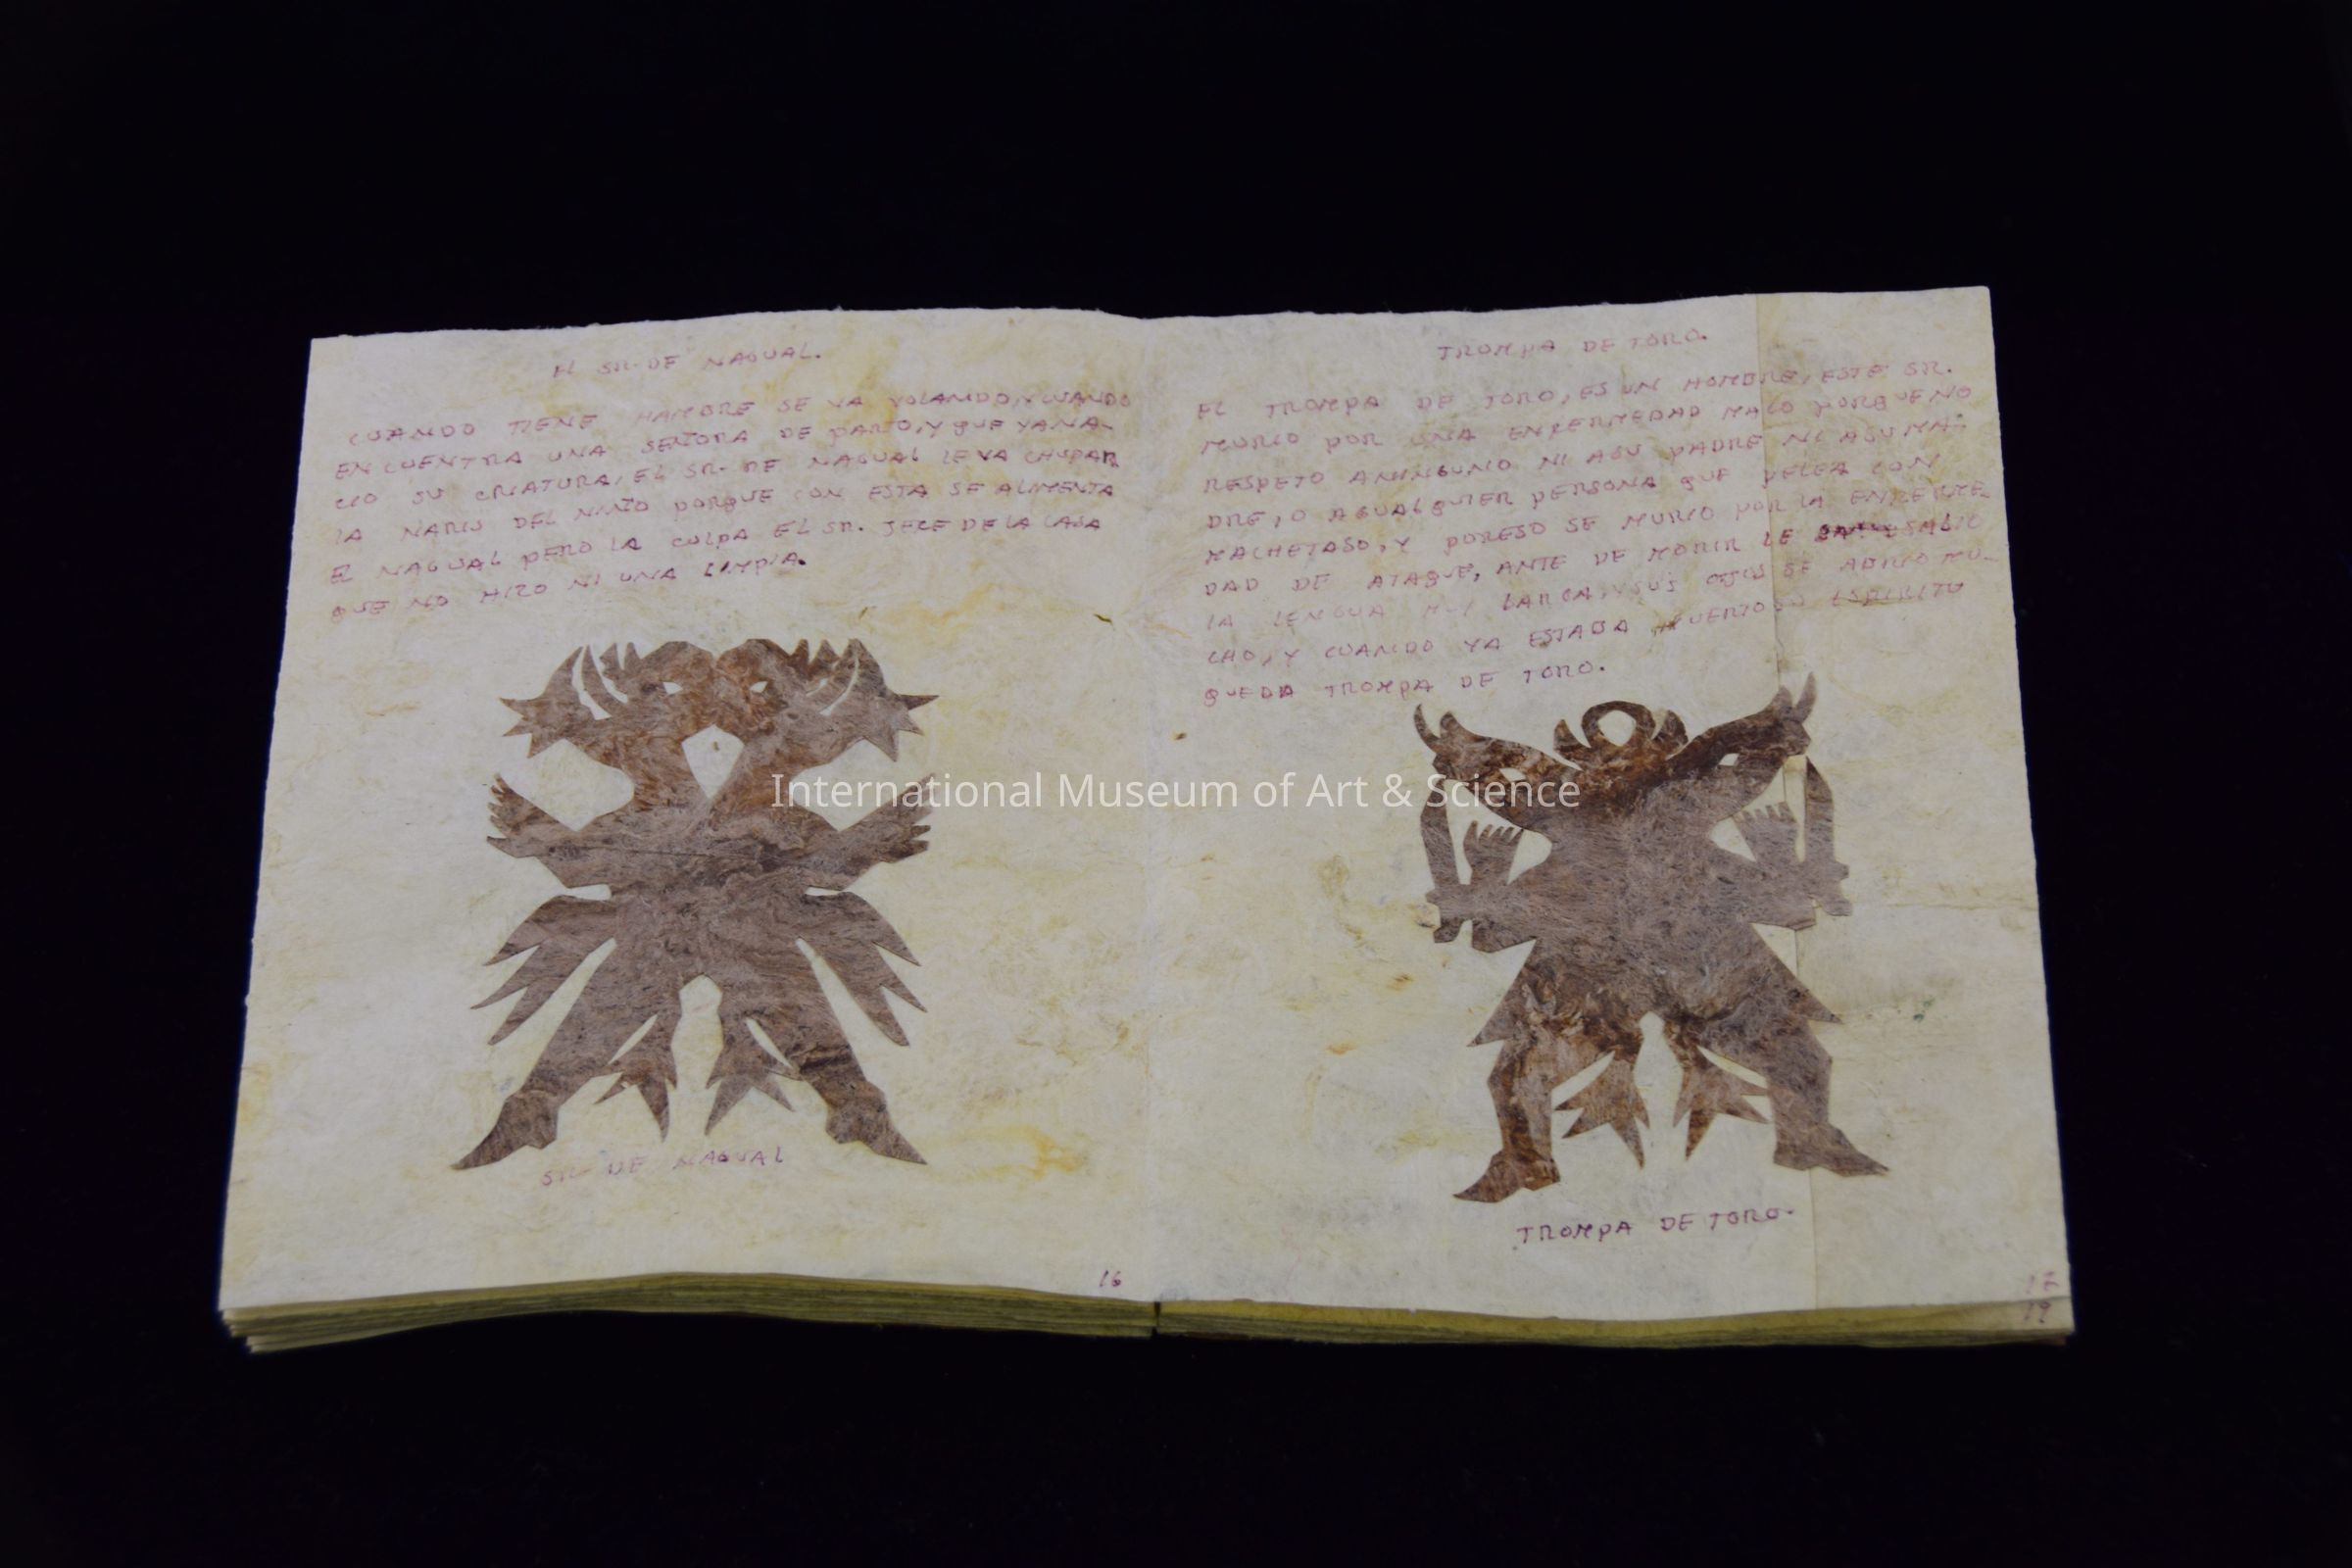 EL SR. DE NAGUAL.
CUANDO TIENE HAMBRE SE VA VOLANDO, Y CUANDO
ENCUENTRA UNA SEÑORA DE PARTO, Y QUE YA NA-
CIO SU CRIATURA, EL SR. DE NAGUAL LE VA CHUPAR
LA NARIS DEL NIÑO PORQUE CON ESTA SE ALIMENTA
EL NAGUAL PERO LA CULPA EL SR. JEFE DE LA CASA
QUE NO HIZO NI UNA LIMPIA.
SR. DE NAGUAL
16
TROMPA DE TORO.
EL TROMPA DE TORO, ES UN HOMBRE, ESTE SR.
MURIO POR UNA ENFERMEDAD MALO PORQUE NO
RESPETO ANINGUNO NI ASU PADRE NI ASU MA-
DRE, O AGUALQUIER PERSONA QUE PELEA CON
MACHETASO, Y PORESO SE MURIO POR LA ENFERME-
DAD DE ATAQUE, ANTE DE MORIR LE SALIO
LA LENGUA MUI LARGA, Y SUS OJOS SE ABRIO MU-
CHO, Y CUANDO YA ESTABA MUERTO SU ESPIRITU
QUEDA TROMPA DE TORO.
TROMPA DE TORO.
17
19
International Museum of Art & Science